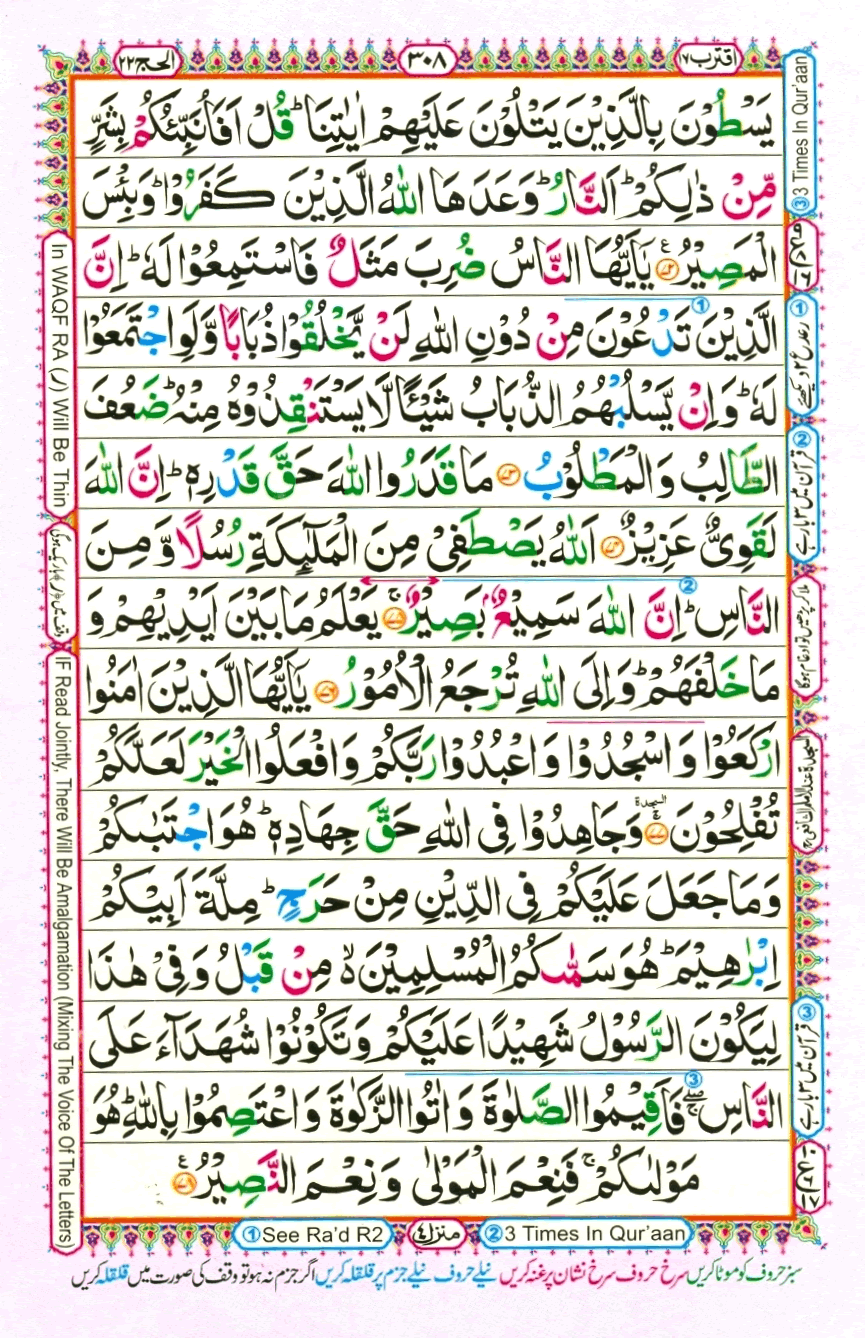 اقترب ١٧
٣٠٨
الحج ٢٢
يَسْطُوْنَ بِالَّذِيْنَ يَتْلُوْنَ عَلَيْهِمْ اٰيٰتِنَا ؕ قُلْ اَفَاُنَبِّئُكُمْ بِشَرٍّ
مِّنْ ذٰلِكُمْ ؕ اَلنَّارُ ؕ وَعَدَهَا اللّٰهُ الَّذِيْنَ كَفَرُوْا ؕ وَبِئْسَ
الْمَصِيْرُ ﴿۷۲﴾ يٰۤاَيُّهَا النَّاسُ ضُرِبَ مَثَلٌ فَاسْتَمِعُوْا لَهٗ ؕ اِنَّ
الَّذِيْنَ تَدْعُوْنَ مِنْ دُوْنِ اللّٰهِ لَنْ يَّخْلُقُوْا ذُبَابًا وَّلَوِ اجْتَمَعُوْا
لَهٗ ؕ وَاِنْ يَّسْلُبْهُمُ الذُّبَابُ شَيْـًٔا لَّا يَسْتَنْقِذُوْهُ مِنْهُ ؕ ضَعُفَ
الطَّالِبُ وَالْمَطْلُوْبُ ﴿۷۳﴾ مَا قَدَرُوا اللّٰهَ حَقَّ قَدْرِهٖ ؕ اِنَّ اللّٰهَ
لَقَوِىٌّ عَزِيْزٌ ﴿۷۴﴾ اَللّٰهُ يَصْطَفِىْ مِنَ الْمَلٰٓئِكَةِ رُسُلًا وَّمِنَ
النَّاسِ ؕ اِنَّ اللّٰهَ سَمِيْعٌۢ بَصِيْرٌ ۚ﴿۷۵﴾ يَعْلَمُ مَا بَيْنَ اَيْدِيْهِمْ وَ
مَا خَلْفَهُمْ ؕ وَاِلَى اللّٰهِ تُرْجَعُ الْاُمُوْرُ ﴿۷۶﴾ يٰۤاَيُّهَا الَّذِيْنَ اٰمَنُوا
ارْكَعُوْا وَاسْجُدُوْا وَاعْبُدُوْا رَبَّكُمْ وَافْعَلُوا الْخَيْرَ لَعَلَّكُمْ
تُفْلِحُوْنَ ۚ﴿۷۷﴾ السجدة وَجَاهِدُوْا فِى اللّٰهِ حَقَّ جِهَادِهٖ ؕ هُوَ اجْتَبٰىكُمْ
وَمَا جَعَلَ عَلَيْكُمْ فِى الدِّيْنِ مِنْ حَرَجٍ ؕ مِلَّةَ اَبِيْكُمْ
اِبْرٰهِيْمَ ؕ هُوَ سَمّٰىكُمُ الْمُسْلِمِيْنَ ۙ مِنْ قَبْلُ وَفِىْ هٰذَا
لِيَكُوْنَ الرَّسُوْلُ شَهِيْدًا عَلَيْكُمْ وَتَكُوْنُوْا شُهَدَآءَ عَلَى
النَّاسِ ۖۚ فَاَقِيْمُوا الصَّلٰوةَ وَاٰتُوا الزَّكٰوةَ وَاعْتَصِمُوْا بِاللّٰهِ ؕ هُوَ
مَوْلٰىكُمْ ۚ فَنِعْمَ الْمَوْلٰى وَنِعْمَ النَّصِيْرُ ﴿۷۸﴾
③3 Times In Qur'aan
① رعد ع ۲ دیکھئے
② قرآن میں ۳ بار ہے
ملا کر پڑھیں تو ادغام ہوگا
③ قرآن میں ۳ بار ہے
In WAQF RA (ر) Will Be Thin
IF Read Jointly, There Will Be Amalgamation (Mixing The Voice Of The Letters)
①See Ra'd R2
منزل ٤
②3 Times In Qur'aan
سبز حروف کو موٹا کریں سرخ حروف سرخ نشان پر غنہ کریں نیلے حروف نیلے جزم پر قلقلہ کریں اگر جزم نہ ہو تو وقف کی صورت میں قلقلہ کریں